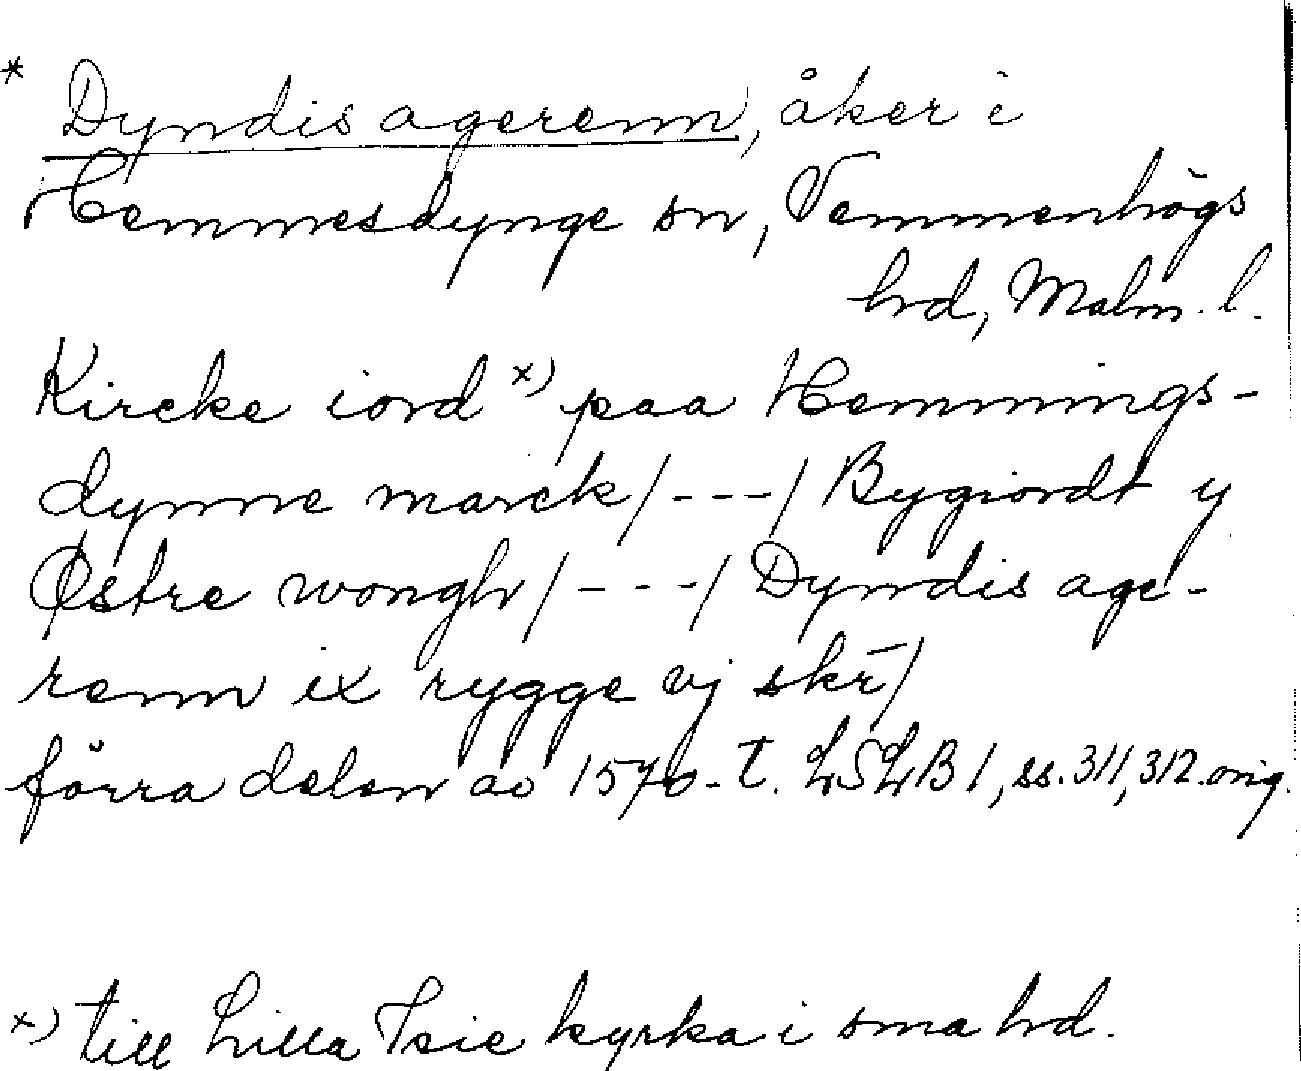 * Dyndis agerenn, åker i
Hemmesdynge sn, Vemmenhögs
hrd, Malm. l.
Kircke iord x) paa Hemmings-
dynne marck/---/ Bygiordt y
Østre wongh/---/ Dyndis age-
renn ix rygge vj skr̄/
förra delen av 1570-t. LSLB 1, ss. 311, 312. orig.
x) till Lilla Isie kyrka i sma hrd.